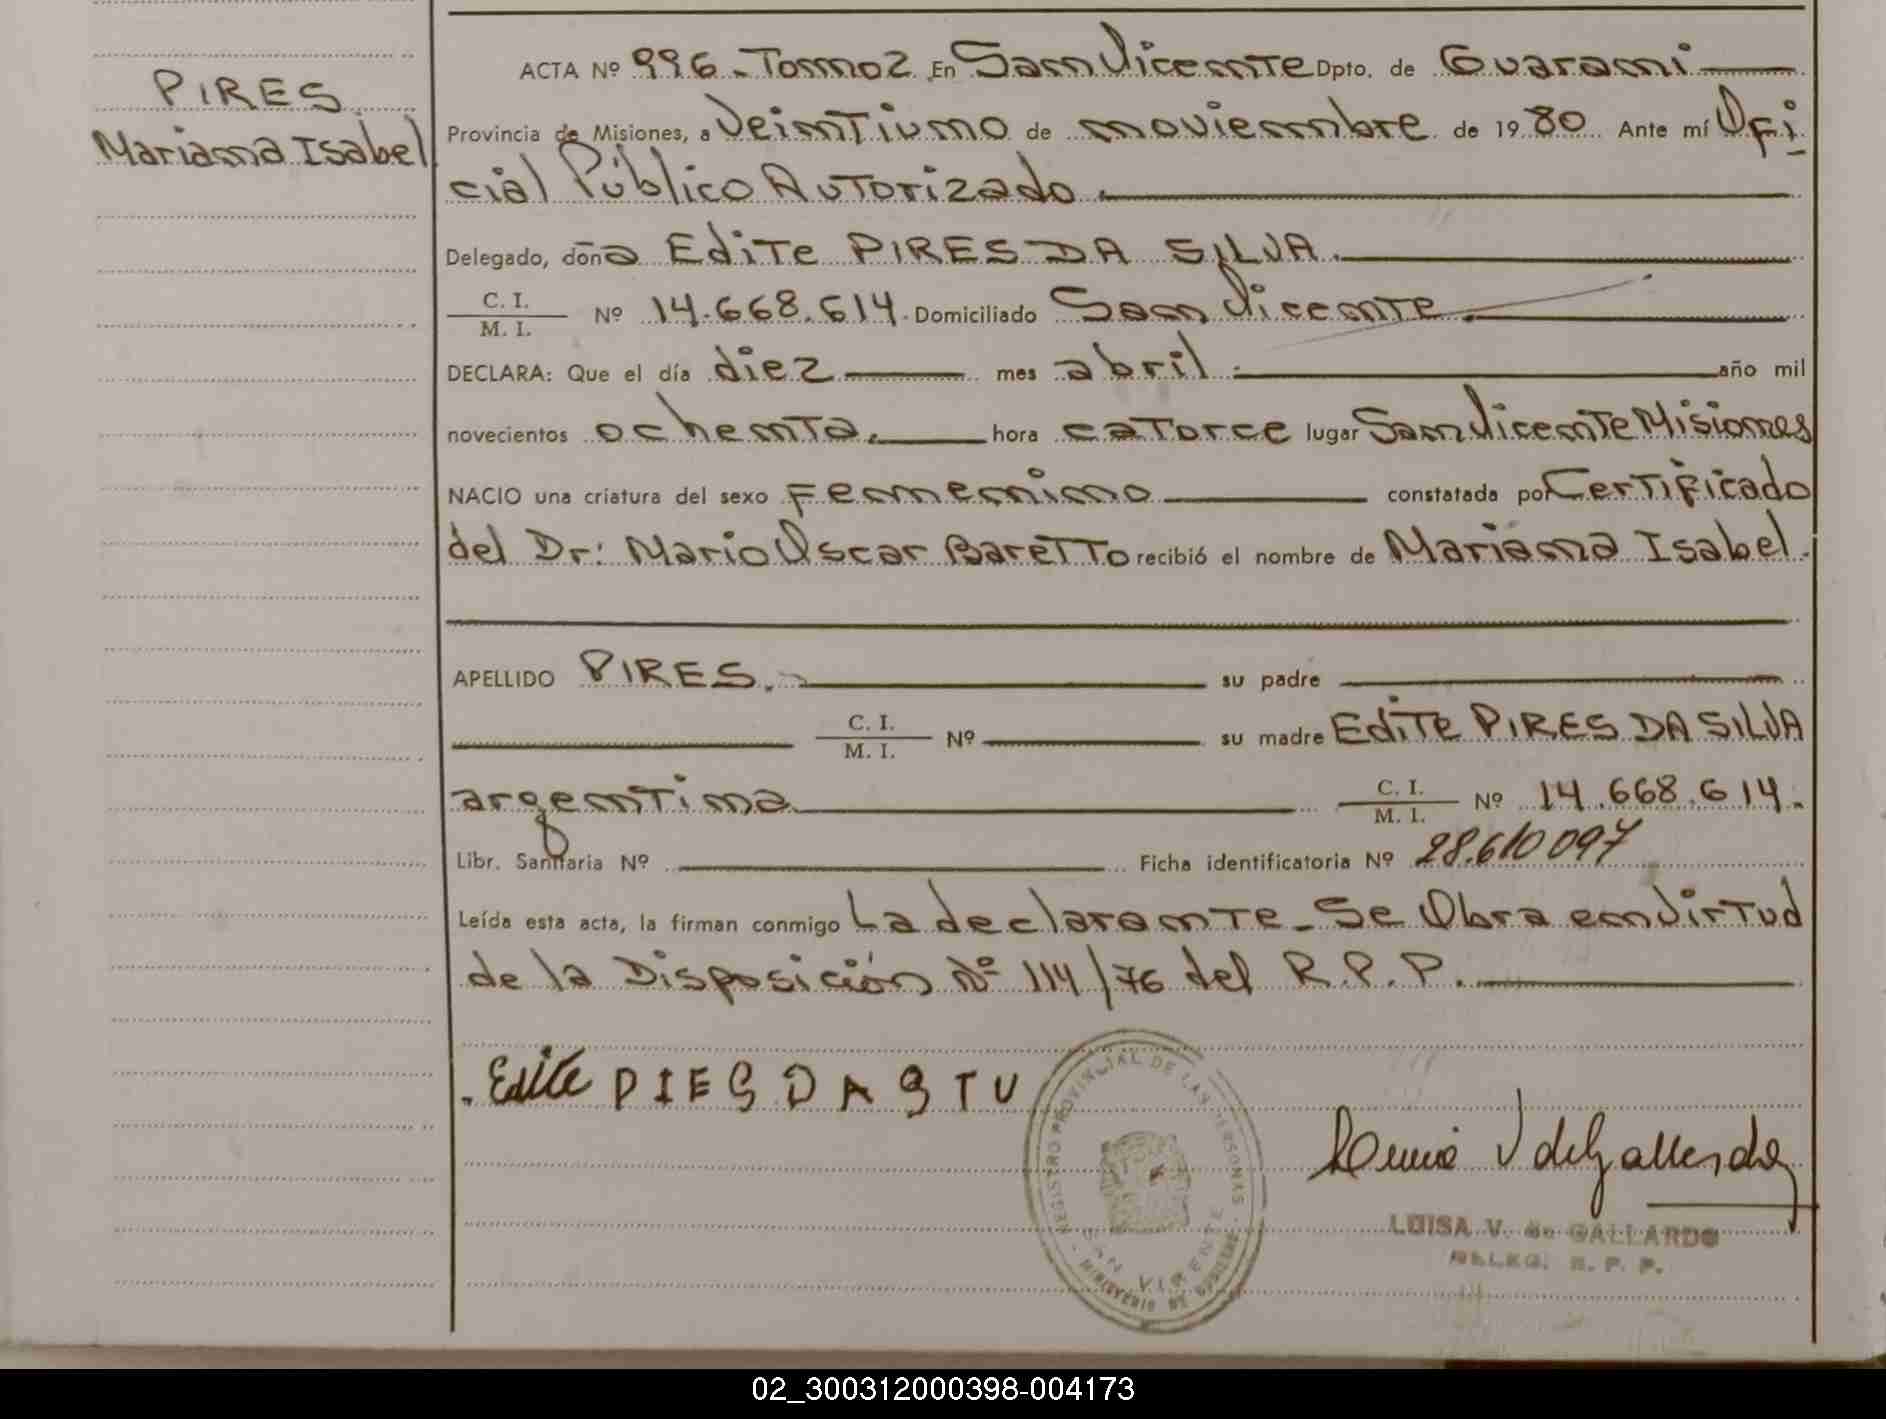 PIRES
Mariana Isabel
ACTA Nº 996. Tomo 2. En San Vicente Dpto. de Guarani
Provincia de Misiones, a Veintiuno de noviembre de 1980 Ante mí Ofi
cial Público Autorizado.
Delegado, doña Edite PIRES DA SILVA.
C. I.
M. I. Nº 14.668.614. Domiciliado San Vicente.
DECLARA: Que el día diez mes abril. año mil
novecientos ochenta. hora catorce lugar San Vicente Misiones
NACIO una criatura del sexo femenino constatada por Certificado
del Dr: Mario Oscar Baretto recibió el nombre de Mariana Isabel.
APELLIDO PIRES. su padre
C. I.
M. I. Nº su madre Edite PIRES DA SILVA
argentina C. I.
M. I. Nº 14.668.614.
Libr. Sanitaria Nº Ficha identificatoria Nº 28.610 097
Leída esta acta, la firman conmigo La declarante. Se Obra en virtud
de la Disposición Nº 114/76 del R.P.P.
Edite PIES DA STU
REGISTRO PROVINCIAL DE LAS PERSONAS
SAN VICENTE
MINISTERIO DE GOBIERNO
V de Gallardo
LUISA V. de GALLARDO
DELEG. R. P. P.
02_300312000398-004173